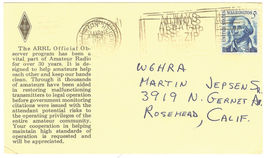 The ARRL Official Ob-
server program has been a
vital part of Amateur Radio
for over 30 years. It is de-
signed to help amateurs help
each other and keep our bands
clean. Through it thousands
of amateurs have been aided
in restoring malfunctioning
transmitters to legal operation
before government monitoring
citations were issued with the
attendant potential risks to
the operating privileges of the
entire amateur community.
Your cooperation in helping
maintain high standards of
operation is requested and
will be appreciated.
ZIP
WASHINGTON
WEHRA
MARTIN JEPSEN SR
3919 N. GERNET AVE
ROSEMEAD CALIF.